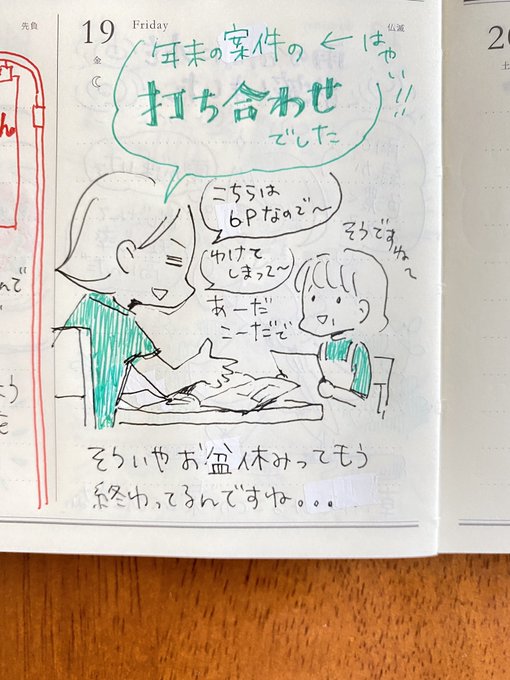 先負
19 Friday
金
仏滅
20
土
年末の案件の ← はやい!!
打ち合わせ
でした
こちらは
6Pなので〜
わけて
しまって〜
あーだ
こ〜だで
そうですね〜
そういやお盆休みってもう
終わってるんですね...
ん
んで